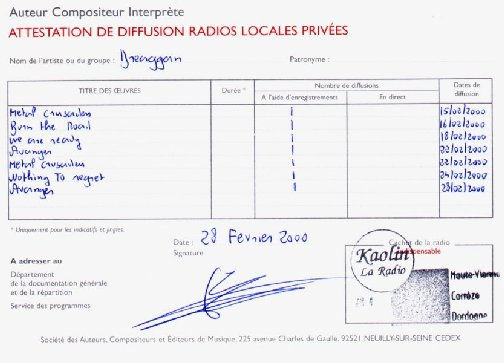 Auteur Compositeur Interprète
ATTESTATION DE DIFFUSION RADIOS LOCALES PRIVÉES
Nom de l'artiste ou du groupe : Patronyme :
TITRE DES ŒUVRES Durée * Nombre de diffusions Dates de diffusion
A l'aide d'enregistrements En direct
Metal crusaders 1 15/02/2000
Burn the Road 1 16/02/2000
We are ready 1 18/02/2000
Avenger 1 22/02/2000
Metal crusaders 1 22/02/2000
Nothing To regret 1 24/02/2000
Avenger 1 28/02/2000
* Uniquement pour les indicatifs et jingles.
Date : 28 Février 2000
Signature
Cachet de la radio
indispensable
Kaolin
La Radio
Haute-Vienne
Corrèze
Dordogne
A adresser au
Département
de la documentation générale
et de la répartition
Service des programmes
Société des Auteurs, Compositeurs et Éditeurs de Musique, 225 avenue Charles de Gaulle, 92521 NEUILLY-SUR-SEINE CEDEX